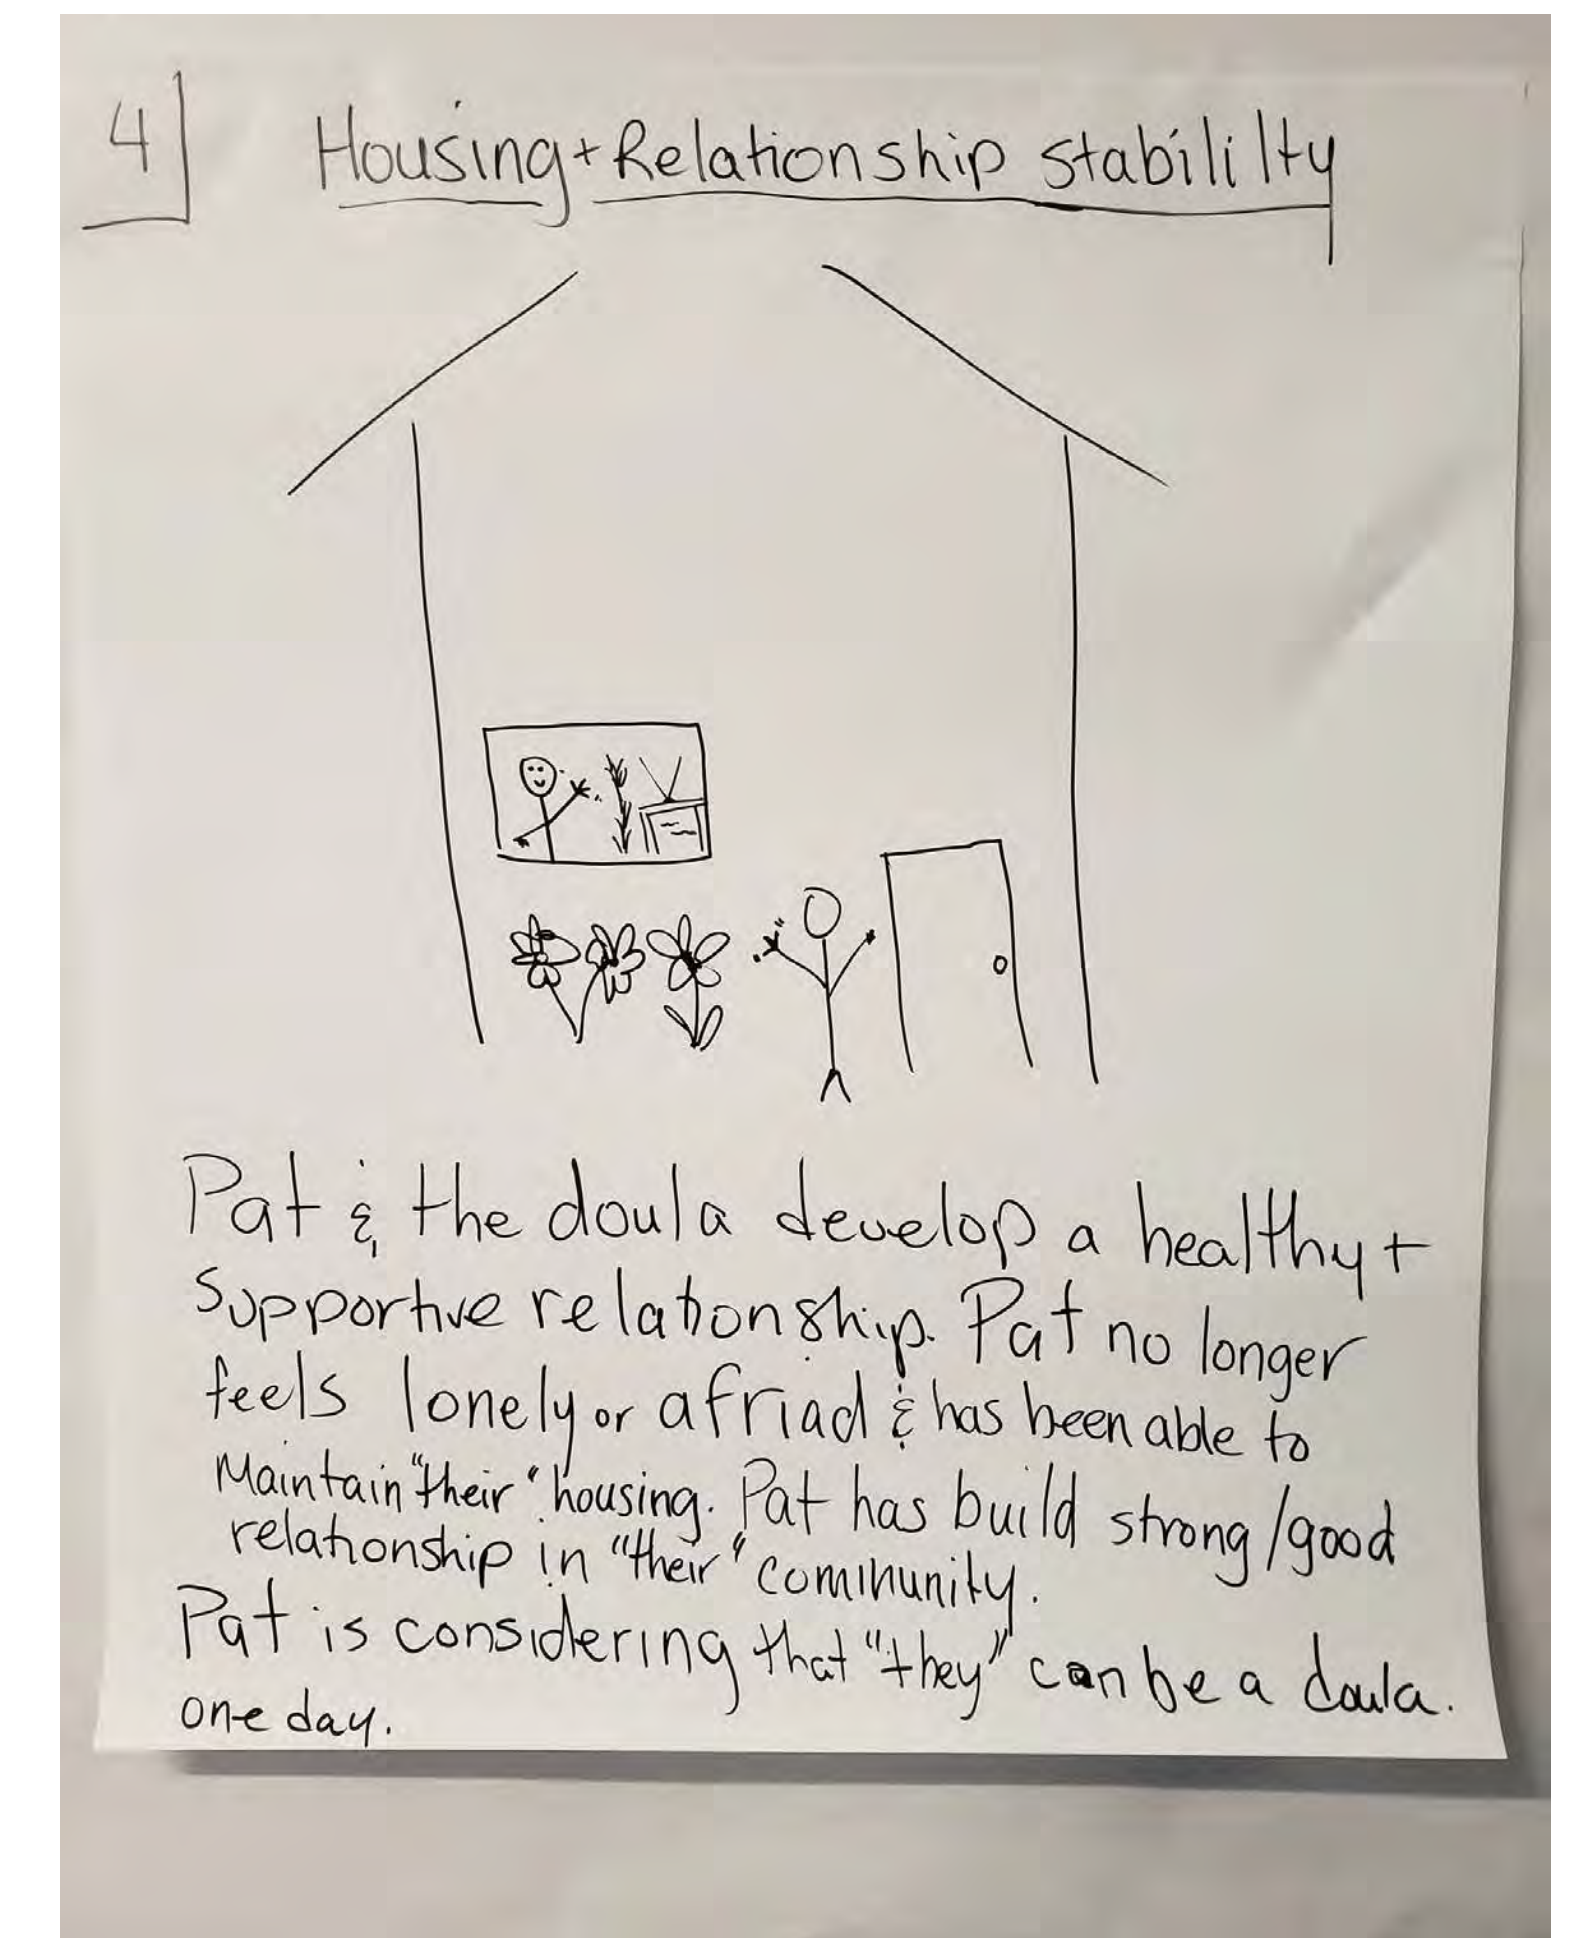 4
Housing + Relationship stabililty
Pat & the doula develop a healthy +
Supportive relationship. Pat no longer
feels lonely or afriad & has been able to
Maintain "their" housing. Pat has build strong/good
relationship in "their" community.
Pat is considering that "they" can be a doula.
one day.